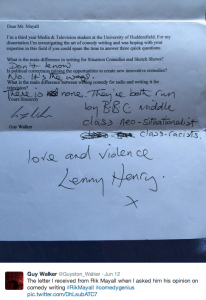 Dear Mr. Mayall
I'm a third year Media & Television student at the University of Huddersfield. For my
dissertation I'm investigating the art of comedy writing and was hoping with your
expertise in this field if you could spare the time to answer three quick questions.
What is the main difference in writing for Situation Comedies and Sketch Shows?
Don't know.
Is political correctness ruining the opportunities to create new innovative comedies?
No. It's the same.
What is the main difference in writing comedy for radio and writing it for
television?
There is none. They're both run
by BBC middle
class neo-situationalist
class-racists.
Yours Sincerely
Guy Walker
love and violence
Lenny Henry.
x
Guy Walker @Guyston_Walker · Jun 12
The letter I received from Rik Mayall when I asked him his opinion on
comedy writing #RikMayall #comedygenius
pic.twitter.com/DhLsubATC7